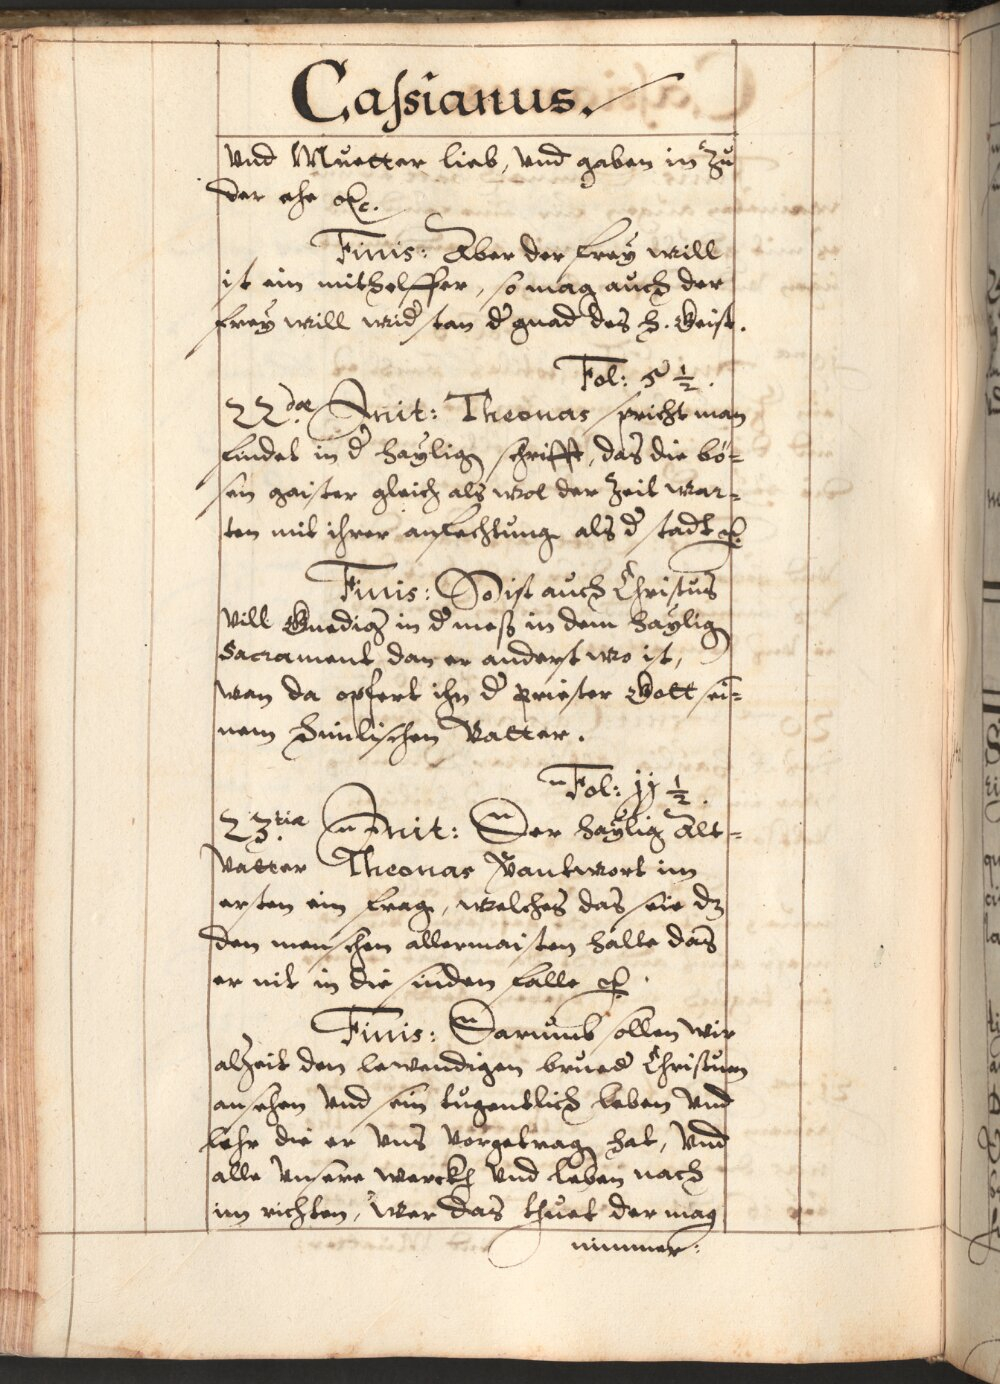 Cassianus.
Vnd Muetter lieb, Vnd gaben in Zu
der ehe &c.
Finis: Aber der frey will
ist ein mithelffer, so mag auch der
frey will wid' stan d' gnad des H. Geist.
Fol: 5 1/2.
22.da Init: Theonas spricht man
findet in d' haylig schrifft, das die bö=
sen gaister gleich als wol der Zeit war=
ten mit ihrer anfechtung als d' stadt &c.
Finis: So ist auch Christus
Vill Gnedig in d' mess in dem haylig
Sacrament dan er anderst wo ist,
wan da opfert ihn d' Priester Gott sei=
nem himlischen Vatter.
Fol: 11 1/2.
23.tia Init: Der haylig Alt=
Vatter Theonas Vantwort im
ersten ein frag, welches das seie dz
den menschen allermaisten halte das
er nit in die sinden falle &c.
Finis: Darumb sollen wir
alzeit den lewendigen brued' Christum
ansehen Vnd sein tugentlich leben Vnd
lehr die er Vns Vorgetrag hat, Vnd
alle Vnsere werck Vnd leben nach
im richten, Wer das thuet der mag
nimmer: